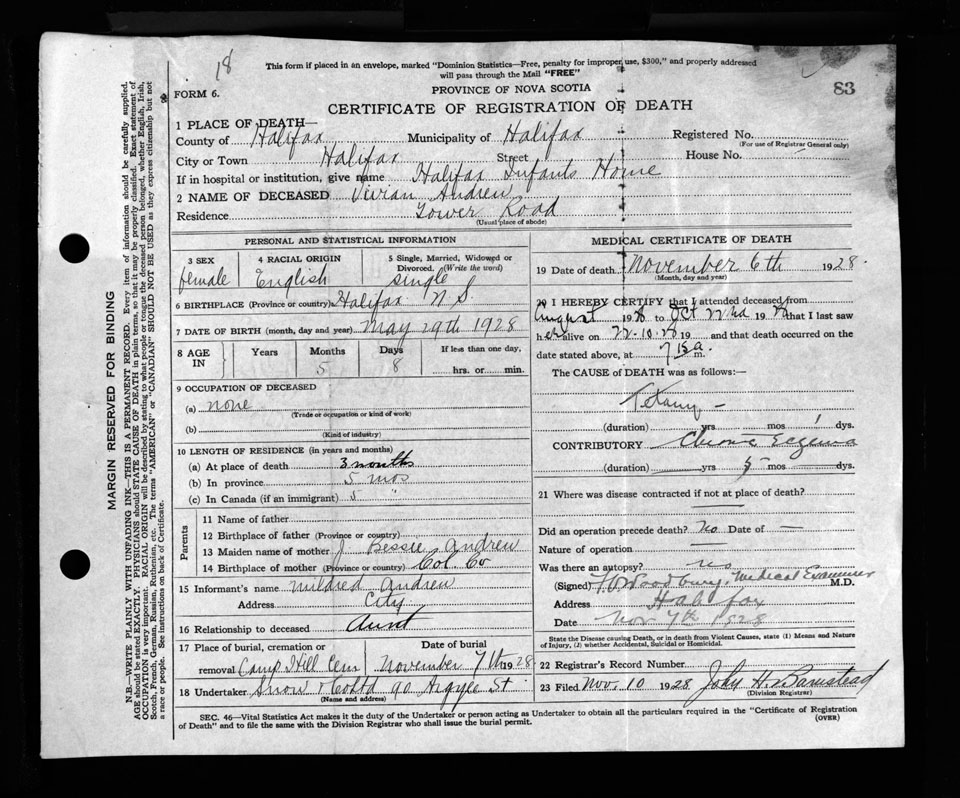 18
This form if placed in an envelope, marked "Dominion Statistics—Free, penalty for improper use, $300," and properly addressed
will pass through the Mail "FREE"
83
FORM 6.
PROVINCE OF NOVA SCOTIA
CERTIFICATE OF REGISTRATION OF DEATH
1 PLACE OF DEATH—
County of Halifax Municipality of Halifax Registered No.
(For use of Registrar General only)
City or Town Halifax Street House No.
If in hospital or institution, give name Halifax Infants Home
2 NAME OF DECEASED Vivian Andrew
Residence Tower Road
(Usual place of abode)
PERSONAL AND STATISTICAL INFORMATION
3 SEX female
4 RACIAL ORIGIN English
5 Single, Married, Widowed or Divorced. (Write the word) single
6 BIRTHPLACE (Province or country) Halifax N S.
7 DATE OF BIRTH (month, day and year) May 29th 1928
8 AGE IN Years Months 5 Days 8 If less than one day, hrs. or min.
9 OCCUPATION OF DECEASED
(a) none
(Trade or occupation or kind of work)
(b)
(Kind of industry)
10 LENGTH OF RESIDENCE (in years and months)
(a) At place of death 3 months
(b) In province 5 mos
(c) In Canada (if an immigrant) 5 "
Parents
11 Name of father
12 Birthplace of father (Province or country)
13 Maiden name of mother J Bessie Andrew
14 Birthplace of mother (Province or country) Col. Co
15 Informant's name Mildred Andrew
Address City
16 Relationship to deceased Aunt
17 Place of burial, cremation or removal Camp Hill Cem
Date of burial November 7th 1928
18 Undertaker Snow & Co Ltd 90 Argyle St
(Name and address)
MEDICAL CERTIFICATE OF DEATH
19 Date of death November 6th 1928.
(Month, day and year)
20 I HEREBY CERTIFY that I attended deceased from
August 1928 to Oct 22nd 1928 that I last saw
her alive on 22-10-28 19 and that death occurred on the
date stated above, at 7 15 a. m.
The CAUSE of DEATH was as follows:—
Tetany —
(duration) yrs mos 1 dys.
CONTRIBUTORY Chronic Eczema
(duration) yrs 5 mos dys.
21 Where was disease contracted if not at place of death?
Did an operation precede death? No Date of —
Nature of operation —
Was there an autopsy? no
(Signed) Woodbury. Medical Examiner M.D.
Address Halifax
Date Nov 7th 1928
State the Disease causing Death, or in death from Violent Causes, state (1) Means and Nature
of Injury, (2) whether Accidental, Suicidal or Homicidal.
22 Registrar's Record Number
23 Filed Nov. 10 1928 John H. Barnstead
(Division Registrar)
SEC. 46—Vital Statistics Act makes it the duty of the Undertaker or person acting as Undertaker to obtain all the particulars required in the "Certificate of Registration
of Death" and to file the same with the Division Registrar who shall issue the burial permit.
(OVER)
MARGIN RESERVED FOR BINDING
N.B.—WRITE PLAINLY WITH UNFADING INK—THIS IS A PERMANENT RECORD. Every item of information should be carefully supplied.
AGE should be stated EXACTLY. PHYSICIANS should STATE CAUSE OF DEATH in plain terms, so that it may be properly classified. Exact statement of
OCCUPATION is very important. RACIAL ORIGIN will be described by stating to what people or tongue the deceased person belonged, whether English, Irish,
Scotch, French, German, Russian, Ruthenian, etc. The terms "AMERICAN" or "CANADIAN" SHOULD NOT BE USED as they express citizenship but not
a race or people. See instructions on back of Certificate.